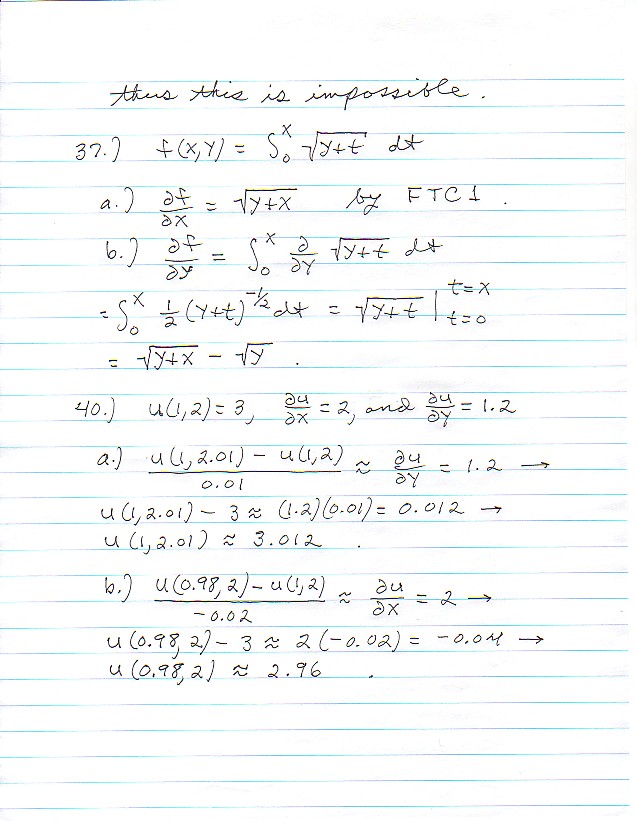 thus this is impossible.
37.) f(x,y) = ∫₀ˣ √(y+t) dt
a.) ∂f/∂x = √(y+x) by FTC1.
b.) ∂f/∂y = ∫₀ˣ ∂/∂y √(y+t) dt
= ∫₀ˣ 1/2 (y+t)^(-1/2) dt = √(y+t) |_(t=0)^(t=x)
= √(y+x) - √y .
40.) u(1,2) = 3, ∂u/∂x = 2, and ∂u/∂y = 1.2
a.) (u(1,2.01) - u(1,2))/0.01 ≈ ∂u/∂y = 1.2 →
u(1,2.01) - 3 ≈ (1.2)(0.01) = 0.012 →
u(1,2.01) ≈ 3.012 .
b.) (u(0.98,2) - u(1,2))/-0.02 ≈ ∂u/∂x = 2 →
u(0.98,2) - 3 ≈ 2(-0.02) = -0.04 →
u(0.98,2) ≈ 2.96 .